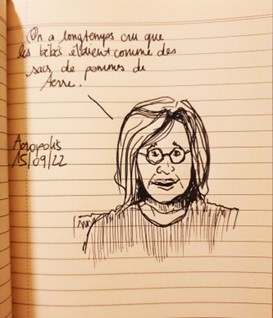 On a longtemps cru que
les bébés étaient comme des
sacs de pommes de
terre.
Acropolis
15/09/22